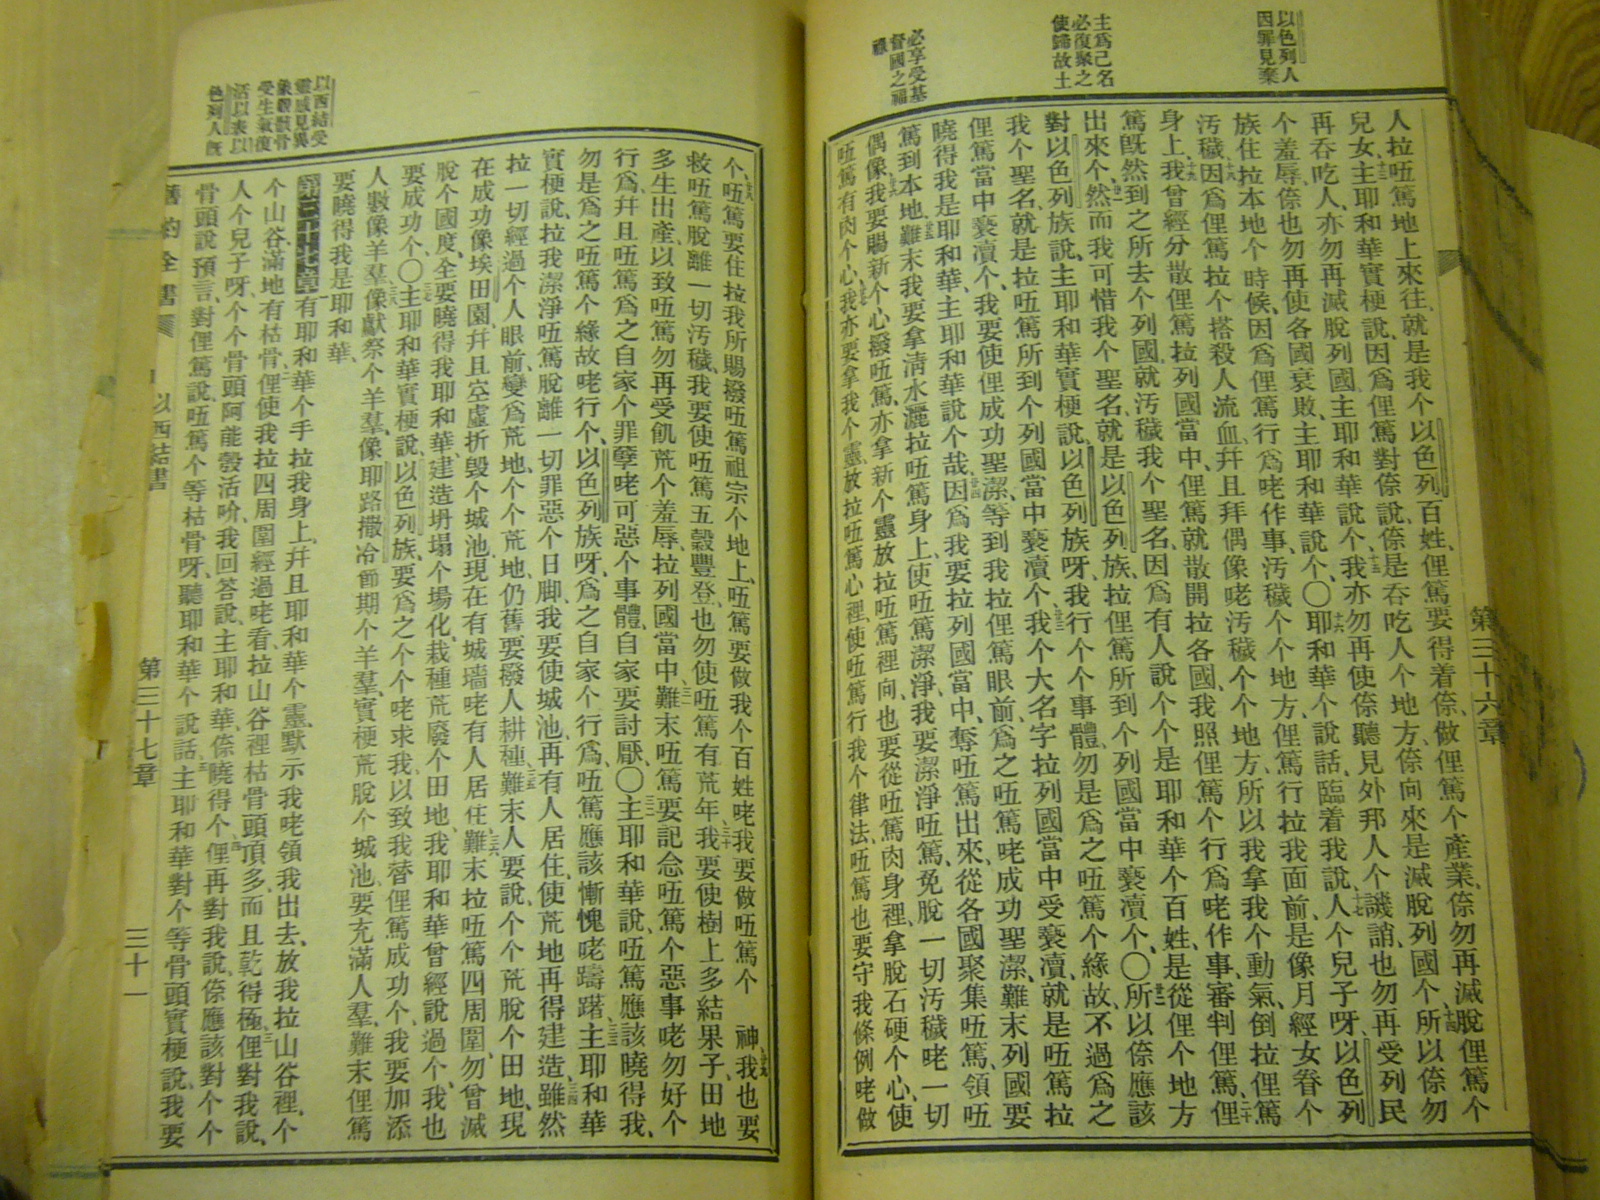 第三十六章
以色列人
因罪見棄
主爲己名
必復聚之
使歸故土
必享受基
督國之福
祿
人拉𠲎篤地上來往、就是我个以色列百姓、俚篤要得着倷、做俚篤个產業、倷勿再滅脫俚篤个
兒女、主耶和華實梗說、因爲俚篤對倷說、倷是吞吃人个地方、倷向來是滅脫列國个、所以倷勿
再吞吃人、亦勿再滅脫列國、主耶和華說个、我亦勿再使倷聽見外邦人个譏誚、也勿再受列民
个羞辱、倷也勿再使各國衰敗、主耶和華說个、〇耶和華个說話、臨着我說、人个兒子呀、以色列
族住拉本地个時候、因爲俚篤行爲咾作事、汚穢个个地方、俚篤行拉我面前、是像月經女眷个
汚穢、因爲俚篤拉个搭殺人流血、幷且拜偶像咾汚穢个个地方、所以我拿我个動氣、倒拉俚篤
身上、我曾經分散俚篤拉列國當中、俚篤就散開拉各國、我照俚篤个行爲咾作事、審判俚篤、俚
篤旣然到之所去个列國、就汚穢我个聖名、因爲有人說、个个是耶和華个百姓、是從俚个地方
出來个、然而我可惜我个聖名、就是以色列族、拉俚篤所到个列國當中褻瀆个、〇所以倷應該
對以色列族說、主耶和華實梗說、以色列族呀、我行个个事體、勿是爲之𠲎篤个緣故、不過爲之
我个聖名、就是拉𠲎篤所到个列國當中褻瀆个、我个大名字、拉列國當中受褻瀆、就是𠲎篤拉
俚篤當中褻瀆个、我要使俚成功聖潔、等到我拉俚篤眼前、爲之𠲎篤咾成功聖潔、難末列國要
曉得我是耶和華、主耶和華說个哉、因爲我要拉列國當中、奪𠲎篤出來、從各國聚集𠲎篤、領𠲎
篤到本地、難末我要拿淸水灑拉𠲎篤身上、使𠲎篤潔淨、我要潔淨𠲎篤、免脫一切汚穢咾一切
偶像、我要賜新个心撥𠲎篤、亦拿新个靈放拉𠲎篤裡向、也要從𠲎篤肉身裡、拿脫石硬个心、使
𠲎篤有肉个心、我亦要拿我个靈、放拉𠲎篤心裡、使𠲎篤行我个律法、𠲎篤也要守我條例咾做
个、𠲎篤要住拉我所賜撥𠲎篤祖宗个地上、𠲎篤要做我个百姓咾、我要做𠲎篤个 神、我也要
救𠲎篤脫離一切汚穢、我要使𠲎篤五穀豐登、也勿使𠲎篤有荒年、我要使樹上多結果子、田地
多生出產、以致𠲎篤勿再受飢荒个羞辱、拉列國當中、難末𠲎篤要記念𠲎篤个惡事咾勿好个
行爲、幷且𠲎篤爲之自家个罪孽咾可惡个事體、自家要討厭、〇主耶和華說、𠲎篤應該曉得我、
勿是爲之𠲎篤个緣故咾行个、以色列族呀、爲之自家个行爲、𠲎篤應該慚愧咾躊躇、主耶和華
實梗說、拉我潔淨𠲎篤脫離一切罪惡个日脚、我要使城池、再有人居住、使荒地再得建造、雖然
拉一切經過个人眼前、變爲荒地、个个荒地、仍舊要撥人耕種、難末人要說、个个荒脫个田地、現
在成功像埃田園、幷且空虛折毀个城池、現在有城墻咾有人居住、難末拉𠲎篤四周圍勿曾滅
脫个國度、全要曉得我耶和華、建造坍塌个場化、栽種荒廢个田地、我耶和華曾經說過个、我也
要成功个、〇主耶和華實梗說、以色列族、要爲之个个咾求我、以致我替俚篤成功个、我要加添
人數像羊羣、像獻祭个羊羣、像耶路撒冷節期个羊羣、實梗荒脫个城池、要充滿人羣、難末俚篤
要曉得我是耶和華、
第三十七章有耶和華个手拉我身上、幷且耶和華个靈、默示我咾領我出去、放我拉山谷裡、个
个山谷、滿地有枯骨、俚使我拉四周圍經過咾看、拉山谷裡枯骨頭頂多、而且乾得極、俚對我說、
人个兒子呀、个个骨頭阿能彀活吤、我回答說、主耶和華、倷曉得个、俚再對我說、倷應該對个个
骨頭說預言、對俚篤說、𠲎篤个等枯骨呀、聽耶和華个說話、主耶和華對个等骨頭實梗說、我要
以西結受
靈感見異
象觀骸骨
受生氣復
活以表以
色列人旣
舊約全書
以西結書
第三十七章
三十一